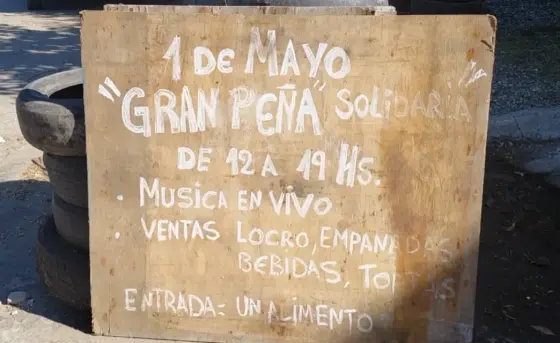 1 DE MAYO
"GRAN PEÑA" SOLIDARIA "
DE 12 A 19 HS.
. MUSICA EN VIVO
. VENTAS LOCRO, EMPANADAS
BEBIDAS, TORTAS
ENTRADA: UN ALIMENTO